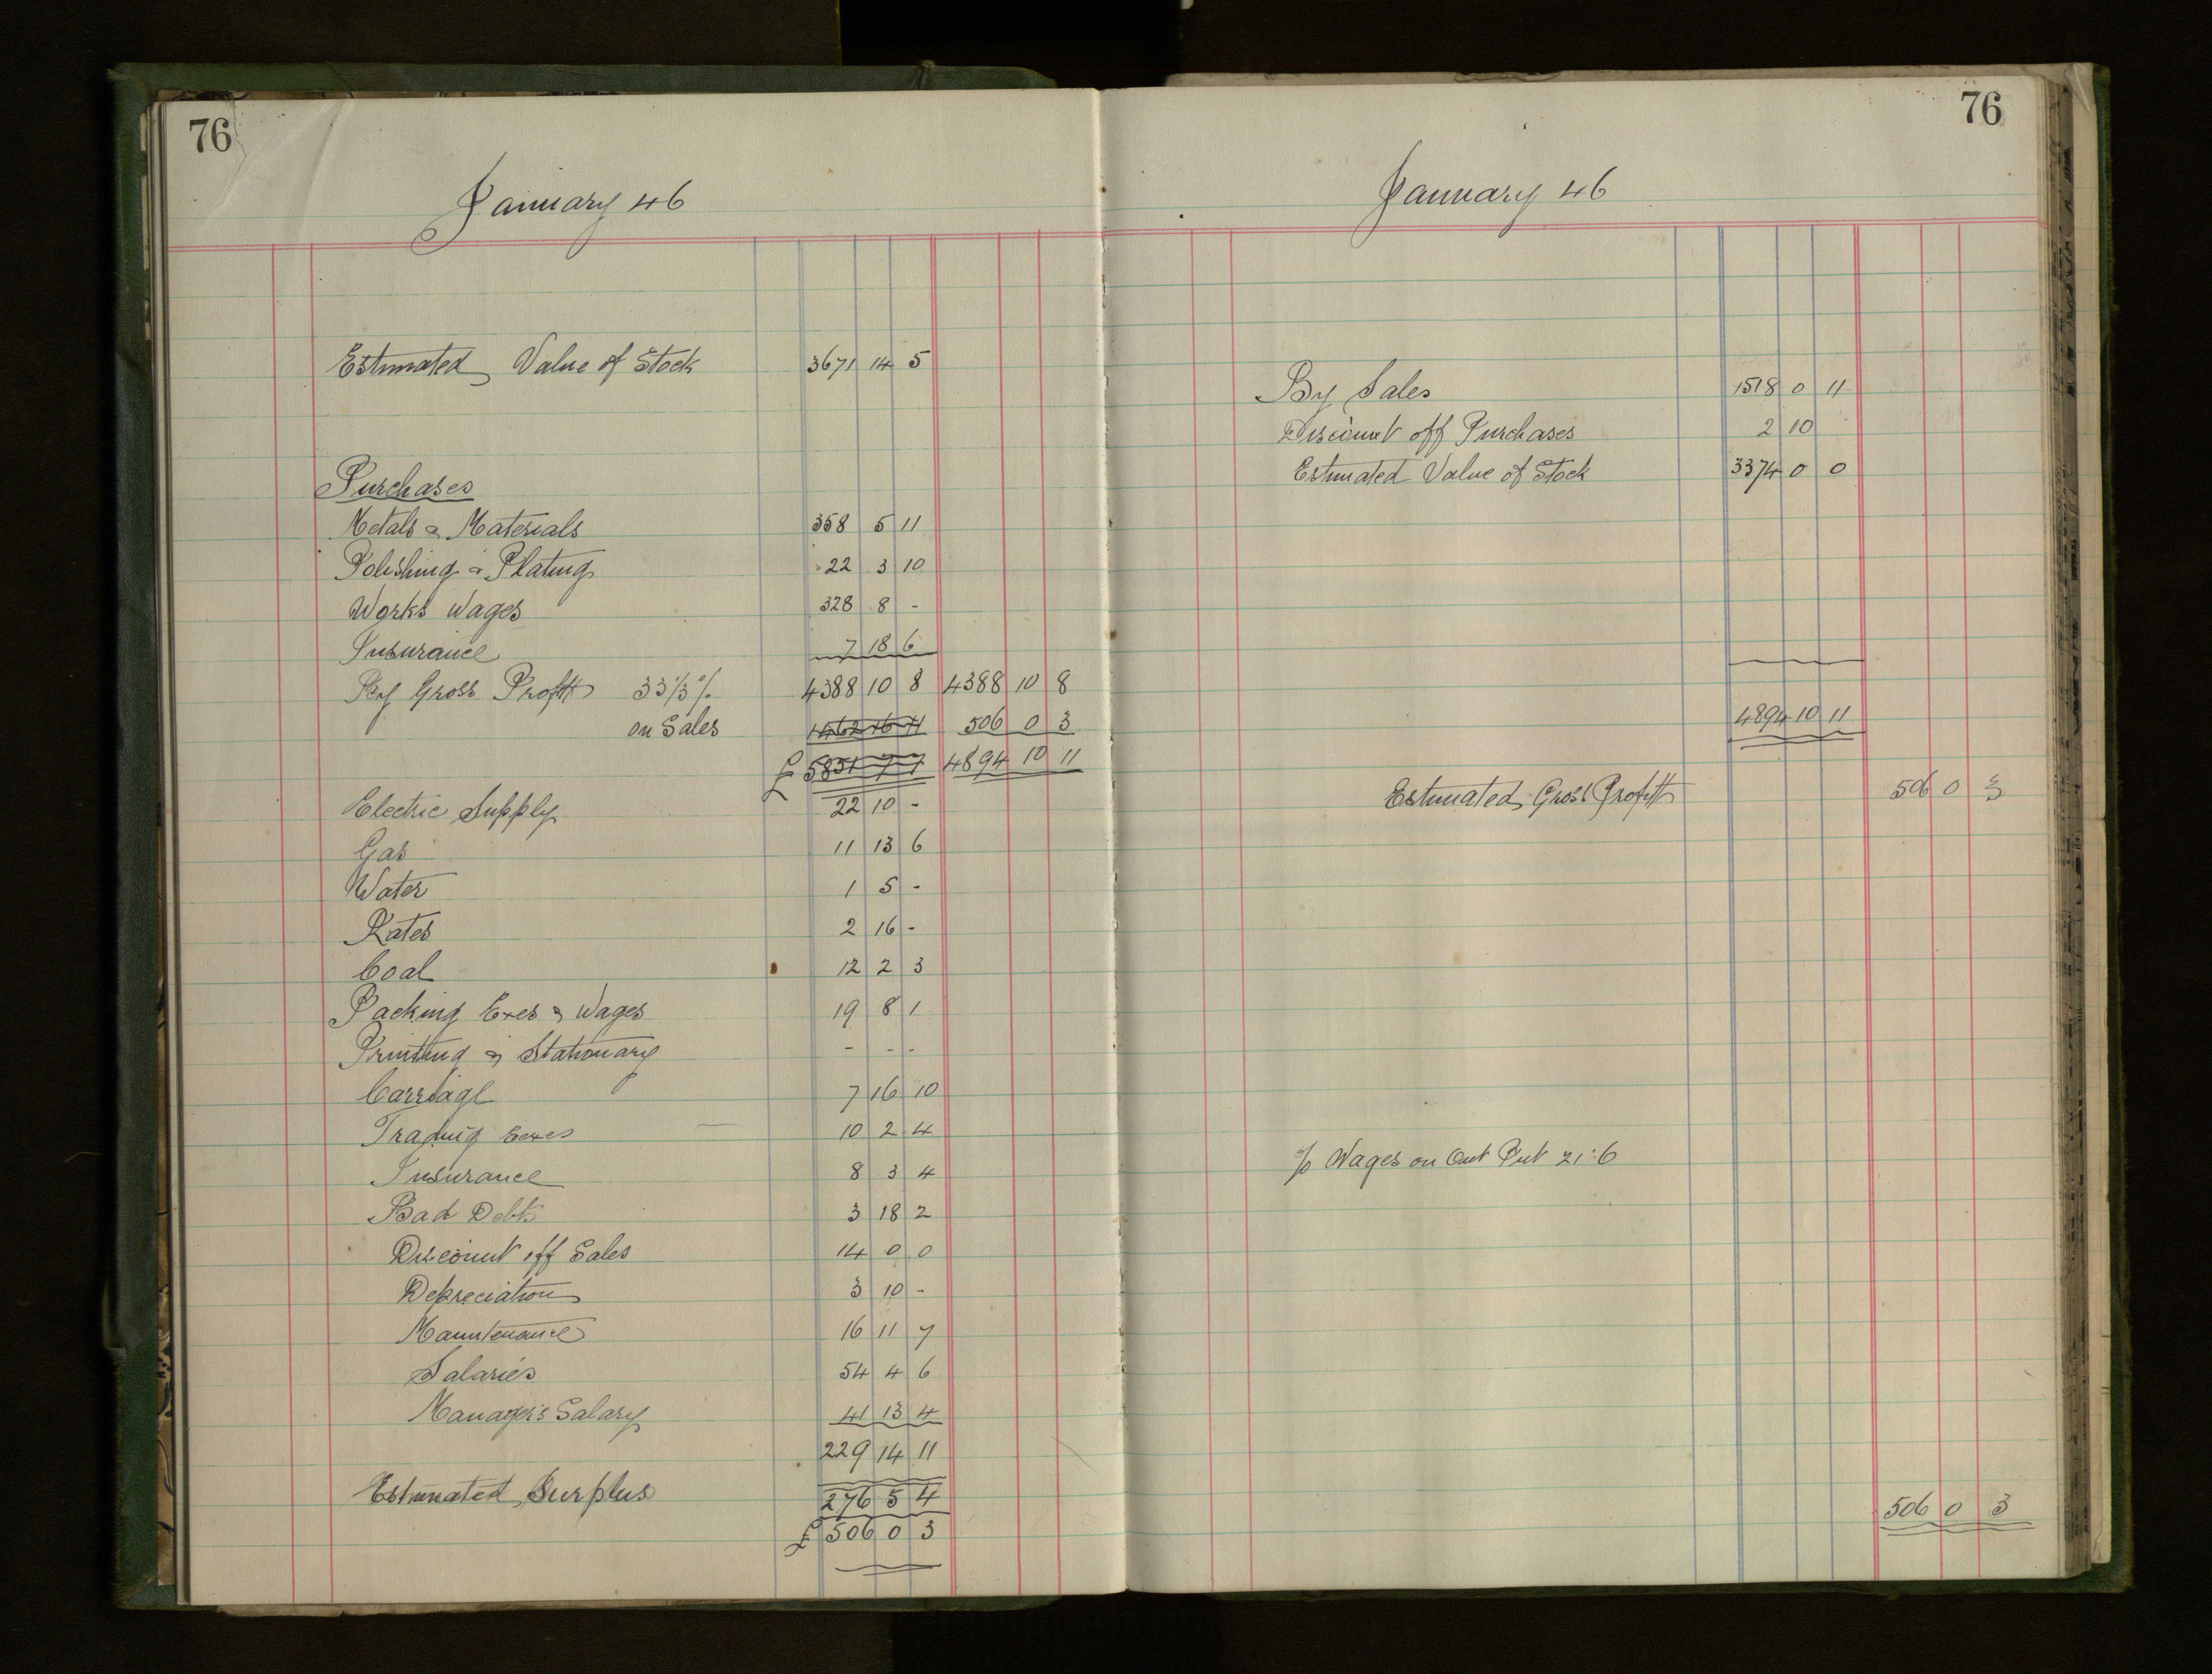 76
January 46
Estimated Value of Stock 3671 14 5
Purchases
Metals & Materials 358 5 11
Polishing & Plating 22 3 10
Works Wages 328 8 -
Insurance 7 18 6
By Gross Profit 33⅓% 4388 10 8 4388 10 8
on Sales 1462 16 11 506 0 3
£ 5851 7 7 4894 10 11
Electric Supply 22 10 -
Gas 11 13 6
Water 1 5 -
Rates 2 16 -
Coal 12 2 3
Packing Exes & Wages 19 8 1
Printing & Stationary - - -
Carriage 7 16 10
Trading Exes 10 2 4
Insurance 8 3 4
Bad Debts 3 18 2
Discount off Sales 14 0 0
Depreciation 3 10 -
Maintenance 16 11 7
Salaries 54 4 6
Manager's Salary 41 13 4
229 14 11
Estimated Surplus 276 5 4
£ 506 0 3
76
January 46
By Sales 1518 0 11
Discount off Purchases 2 10
Estimated Value of Stock 3374 0 0
4894 10 11
Estimated Gross Profit 506 0 3
% Wages on Out Put 21.6
506 0 3